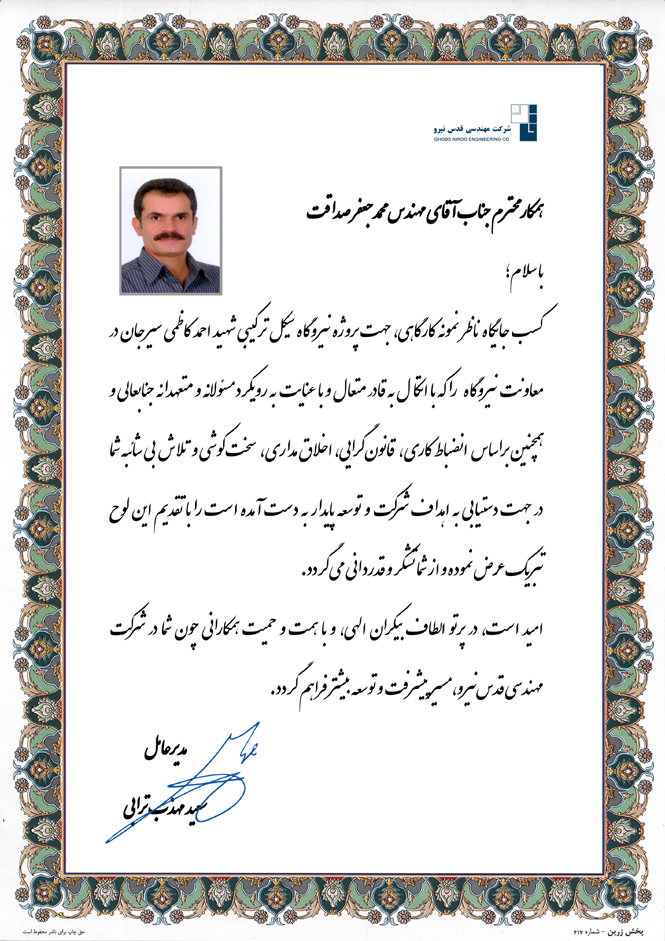 شرکت مهندسی قدس نیرو
GHODS NIROO ENGINEERING CO.
همکار محترم جناب آقای مهندس محمد جعفر صداقت
با سلام؛
کسب جایگاه ناظر نمونه کارگاهی، جهت پروژه نیروگاه سیکل ترکیبی شهید احمد کاظمی سیرجان در
معاونت نیروگاه را که با اتکال به قادر متعال و با عنایت به رویکرد مسئولانه و متعهدانه جنابعالی و
همچنین براساس انضباط کاری، قانون گرایی، اخلاق مداری، سخت کوشی و تلاش بی شائبه شما
در جهت دستیابی به اهداف شرکت و توسعه پایدار به دست آمده است را با تقدیم این لوح
تبریک عرض نموده و از شما تشکر و قدردانی می گردد.
امید است، در پرتو الطاف بیکران الهی، و با همت و حمیت همکارانی چون شما در شرکت
مهندسی قدس نیرو، مسیر پیشرفت و توسعه بیشتر فراهم گردد.
مدیرعامل
سعید مهذب ترابی
پخش زرین - شماره ۴۱۷
حق چاپ برای ناشر محفوظ است.